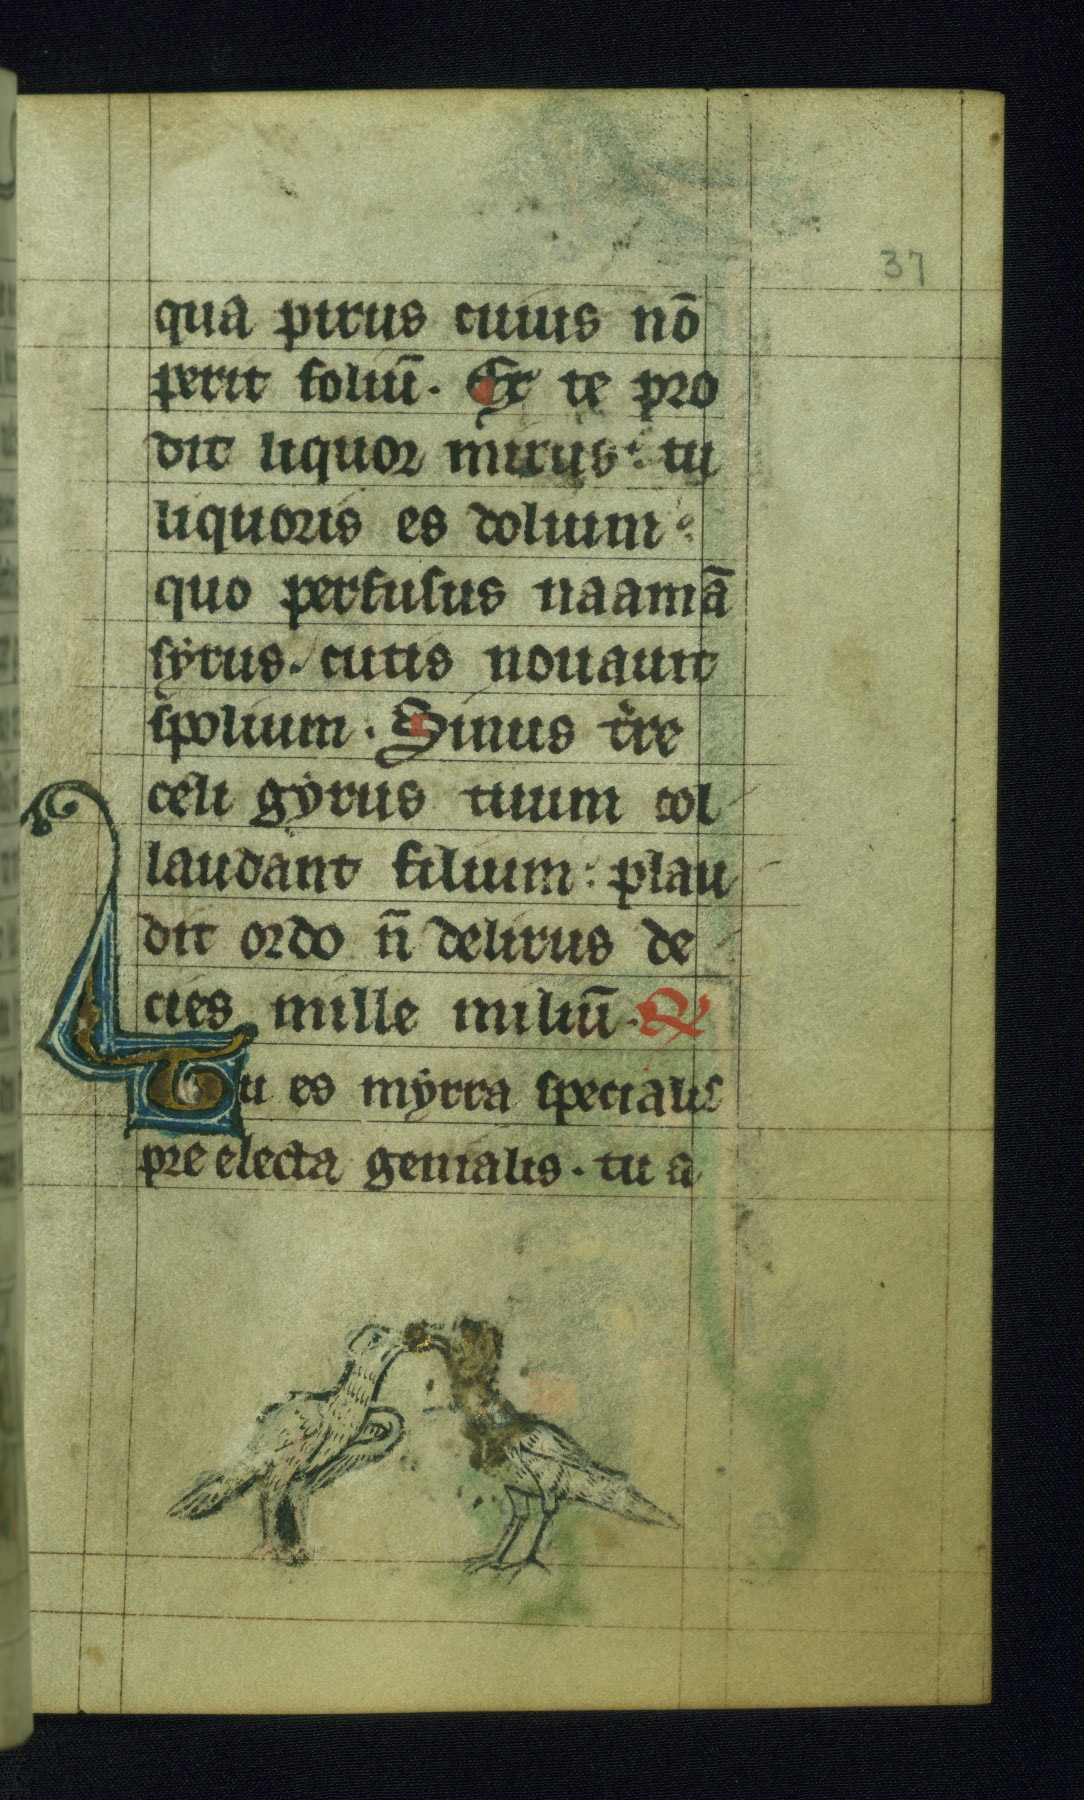 37
qua pirus cuius nō
perit foliū. Ex te pro
dit liquor mirus: tu
liquoris es dolium:
quo perfusus naamā
syrus. cutis nouauit
spolium. Sinus t̄re
celi gyrus tuum col
laudant filium: plau
dit ordo n̄ delirus de
cies mille miliū.
Tu es myrra specialis
pre electa genialis. tu a